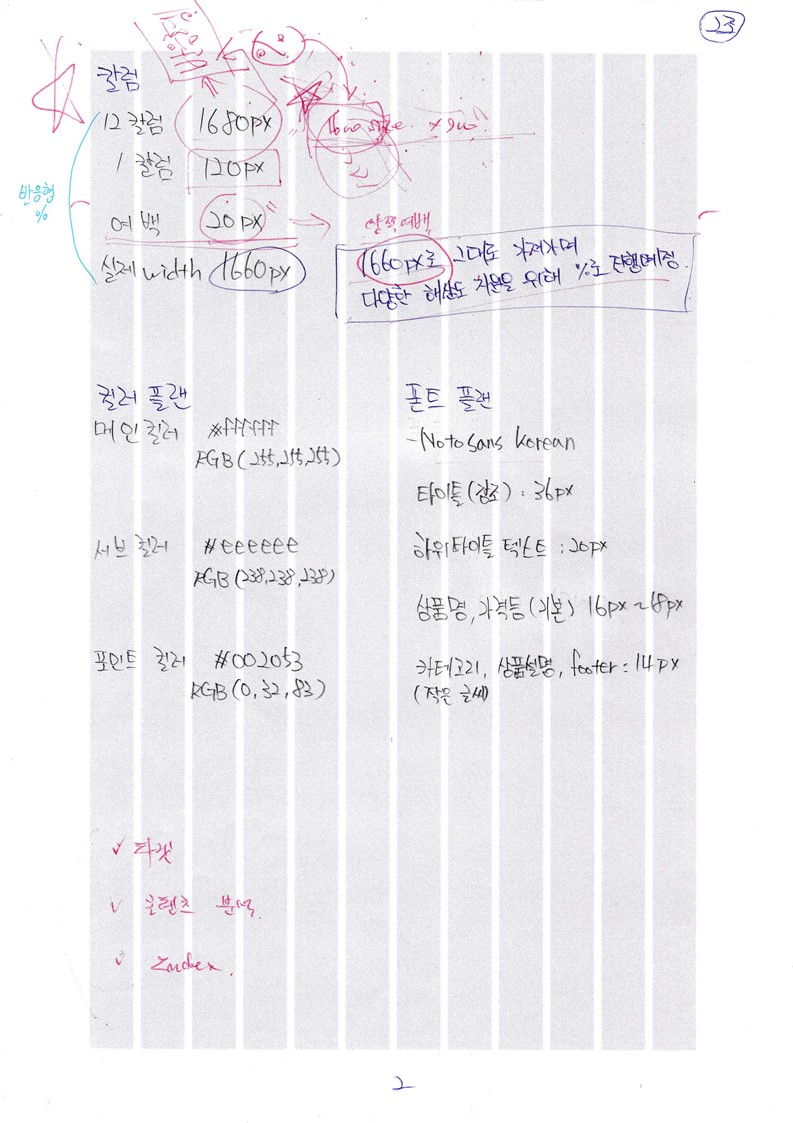 23
칼럼
12 칼럼 1680px
1 칼럼 120px
반응형
%
여백 20px
양쪽여백
실제 width 1660px
1660px로 그대로 가져가며
다양한 해상도 지원을 위해 %로 진행예정.
컬러 플랜
메인컬러 #ffffff
RGB(255,255,255)
서브 컬러 #eeeeee
RGB(238,238,238)
포인트 컬러 #002053
RGB(0,32,83)
폰트 플랜
-Noto Sans Korean
타이틀(강조) : 36px
하위타이틀 텍스트 : 20px
상품명, 가격등(기본) 16px ~18px
카테고리, 상품설명, footer : 14px
(작은 글씨)
✓ 타겟
✓ 콘텐츠 분석.
✓ Index.
2